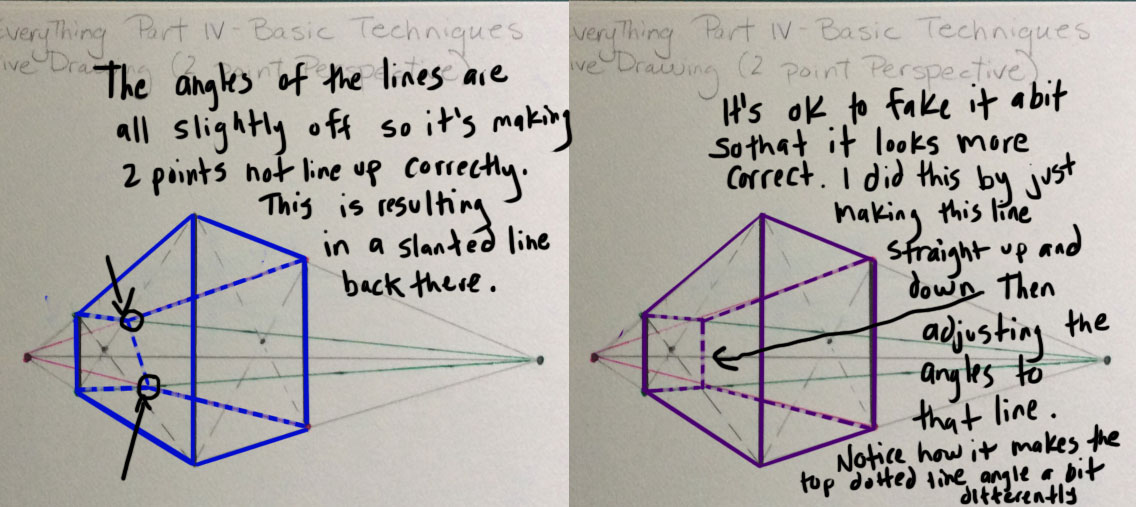 everyThing Part IV - Basic Techniques
ive Drawing (2 point Perspective)
The angles of the lines are
all slightly off so it's making
2 points not line up correctly.
This is resulting
in a slanted line
back there.
verything Part IV - Basic Techniques
ive Drawing (2 point Perspective)
It's ok to fake it a bit
so that it looks more
correct. I did this by just
making this line
straight up and
down. Then
adjusting the
angles to
that line.
Notice how it makes the
top dotted line angle a bit
differently